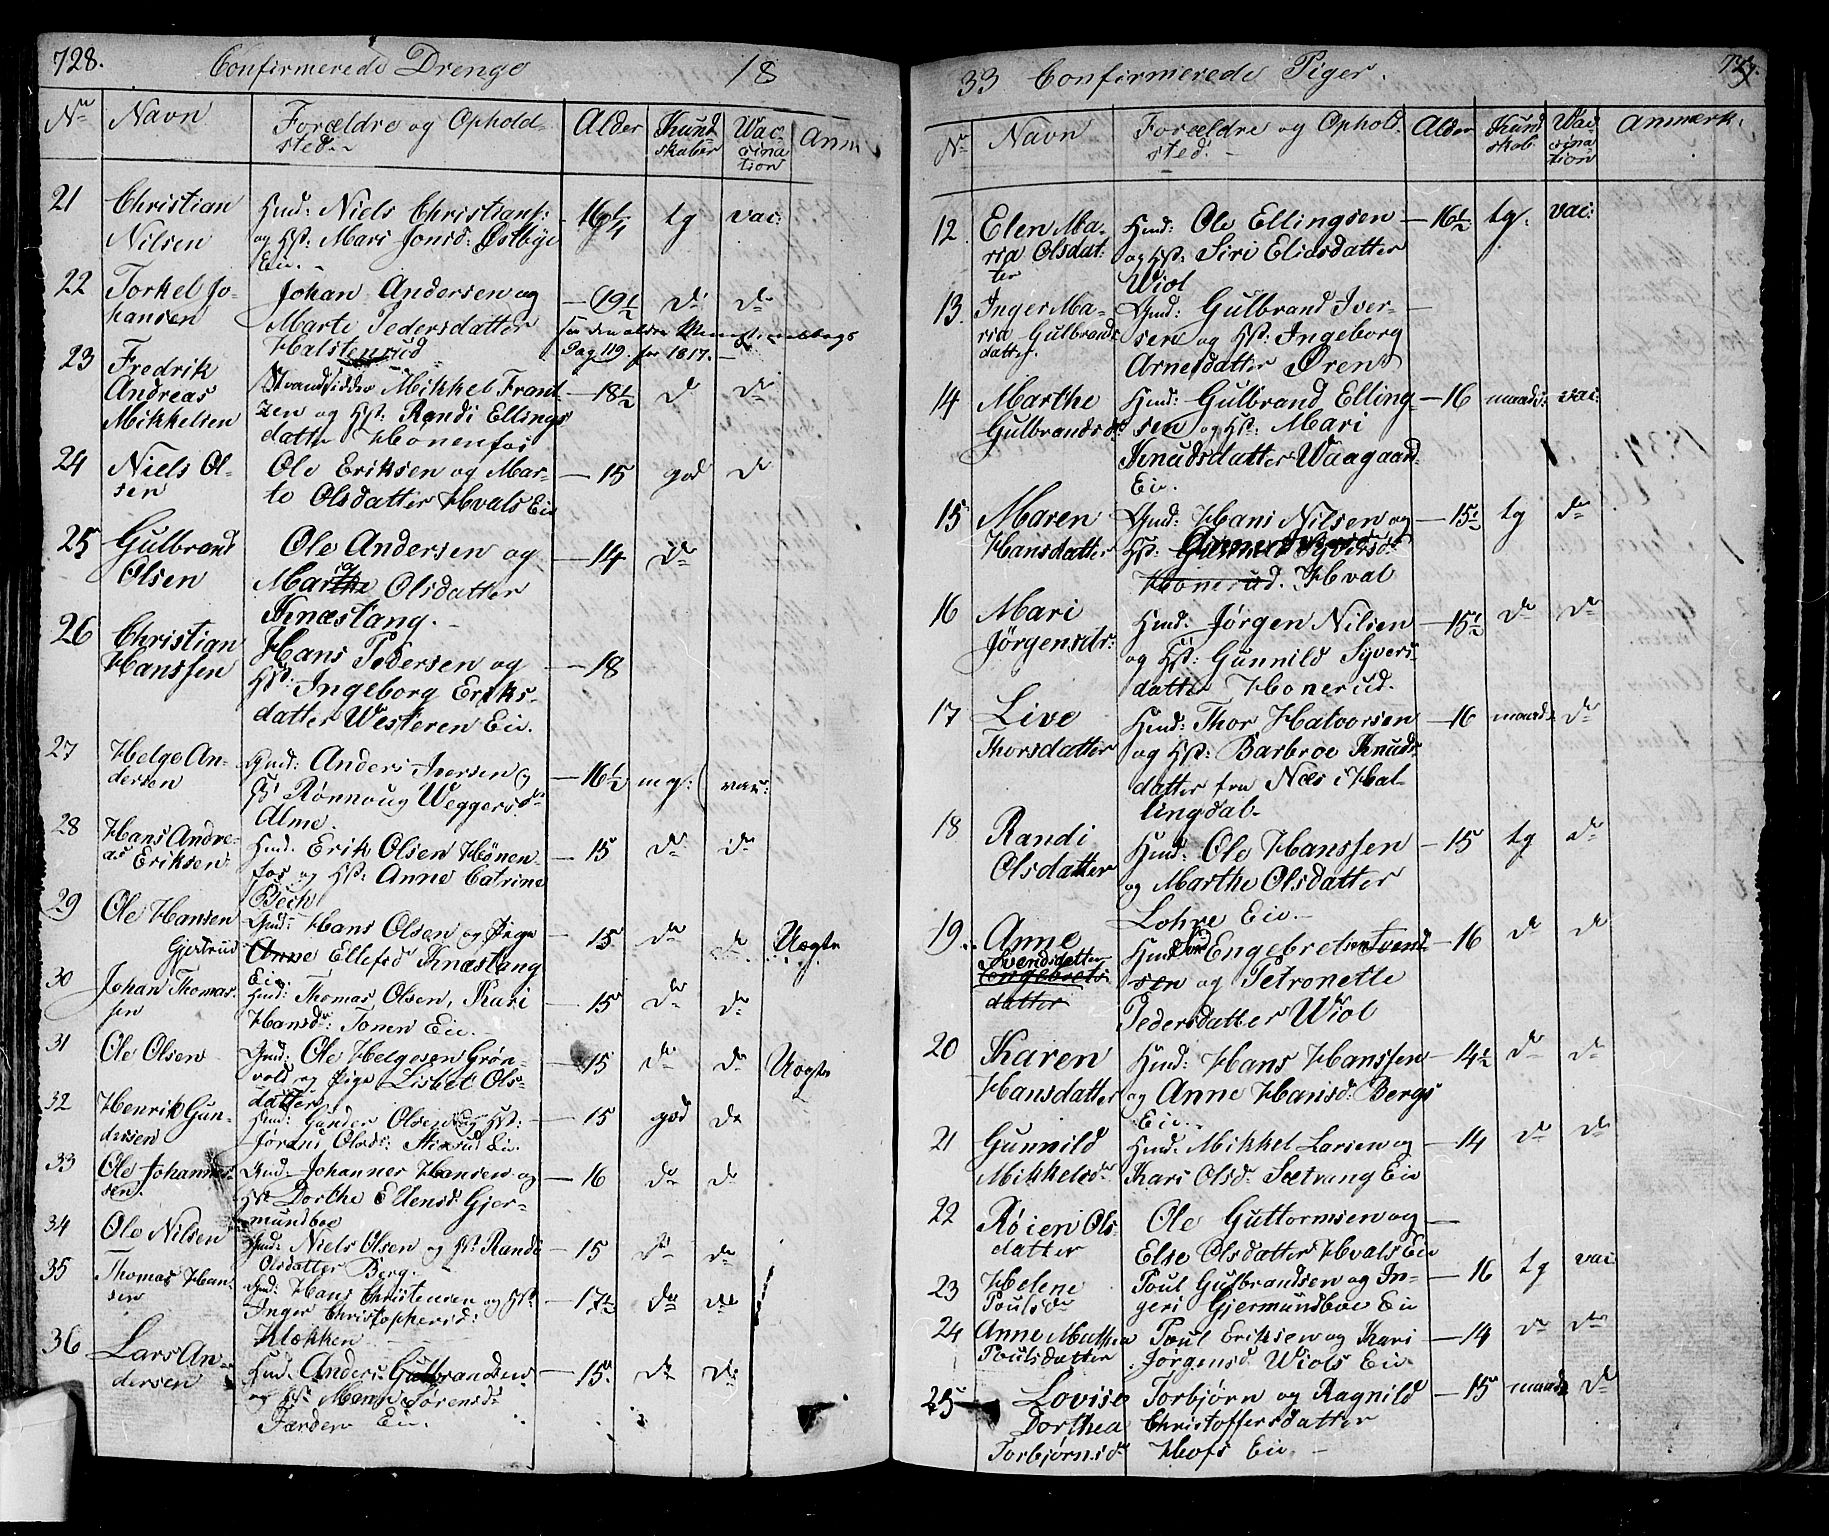 728.
Confirmerede Drenge
18
No
Navn
Forældre og Ophold-
sted.
Alder
Kund
skaber
Wac
sina
tion
Anm
21
Christian
Nilsen
Hmd: Niels Christians:
og Hst: Mari Jonsd: Østbye
Eie.
16 1/4
tg
vac:
22
Torkel Jo-
hansen
Johan Andersen og
Marte Pedersdatter
Halstenrud
19 1/2
do
do
Pag 119. for 1817.
23
Fredrik
Andreas
Mikkelsen
Strandsidder Mikkel Frant
zen og Hst: Randi Ellings
datter Hönenfos
18 1/2
do
do
24
Niels Ol-
sen
Ole Eriksen og Mar-
te Olsdatter Hvals Eie
15
god
do
25
Gulbrand
Olsen
Ole Andersen og
Marthe Olsdatter
Knæstang.
14
do
26
Christian
Hanssen
Hans Pedersen og
Hst: Ingeborg Eriks-
datter Westeren Eie.
18
27
Helge An-
dersen
Gmd: Anders Iversen og
Hst Rønnoug Weggersd
Alme.
16 1/2
mg:
vac:
28
Hans Andre-
as Eriksen
Hmd: Erik Olsen Hönen-
fos og Hst: Anne Catrine
Bech
15
do
do
29
Ole Hansen
Gjertrud
Gmd: Hans Olsen og Pige
Anne Ellefsd Knæstang
Eie.
15
do
do
Uægte
30
Johan Thomas-
sen
Hmd: Thomas Olsen, Kari
Hansdr: Tonen Eie.
15
do
do
31
Ole Olsen
Gmd: Ole Helgesen Grön-
vold og Pige Lisbet Ols-
datter
15
do
do
Uægte
32
Henrik Gun-
dersen
Hmd: Gunder Olsen og Hst:
Jørans Olsd: Eie.
15
god
do
33
Ole Johannes-
sen.
Gmd. Johannes Hansen og
Hst Dorthe Ellensd: Gjer-
mundboe
16
do
do
34
Ole Nilsen
Gmd: Niels Olsen og Hst: Randi
Olsdatter Berg.
15
do
do
35
Thomas Han-
sen
Gmd: Hans Christensen og Hst:
Inger Christophersd:
Klækken
17 1/2
do
do
36
Lars An-
dersen
Hmd. Anders Gulbrandsen
og Hst Sørensd:
Færden Eie.
15
do
do
33
Confirmerede Piger.
729.
No
Navn
Forældre og Ophold-
sted.
Alder
Kund
skab.
Wac
sina
tion
Anmærk.
12
Elen Ma-
ria Olsdat-
ter
Hmd: Ole Ellingsen
og Hst: Siri Eliasdatter
Wiol
16 1/2
tg.
vac:
13.
Inger Ma-
ria Gulbrands-
datter.
Gmd: Gulbrand Iver-
sen og Hst: Ingeborg
Arnesdatter Øren
14
Marthe
Gulbrandsdr
Hmd: Gulbrand Elling-
sen og Hst: Mari
Knudsdatter Waagaard
Eie.
16
maadl:
vac:
15
Maren
Hansdatter
Gmd: Hans Nilsen og
Hst: Gunnild Syversdr
Honerud. Hval
15 1/2
tg
do
16
Mari
Jörgensdtr:
Hmd: Jørgen Nilsen
og Hst: Gunnild Syvers-
datter Honerud.
15 1/2
do
do
17
Live
Thorsdatter
Hmd: Thor Halvorsen
og Hst: Barbroe Knuds-
datter fra Næs i Hal-
lingdal.
16
maadl
do
18
Randi
Olsdatter
Hmd: Ole Hanssen
og Marthe Olsdatter
Lohre Eie.
15
tg
do
19.
Anne
Svendsdatter
Engebrets-
datter
Hmd Svend Engebretsen Svend-
sen og Petronette
Pedersdatter Wiol
16
do
do
20
Karen
Hansdatter
Hmd: Hans Hanssen
og Anne Hansd: Bergs
Eie.
14 1/2
do
do
21
Gunnild
Mikkelsdr
Hmd: Mikkel Larsen og
Kari Olsdr Sætrang Eie
14
do
do
22
Röien Ols-
datter
Ole Guttormsen og
Else Olsdatter Hvals Eie
23
Helene
Poulsdr
Poul Gulbrandsen og In-
geri Gjermundboe Eie
16
tg
vac:
24
Anne Mathea
Poulsdatter
Poul Eriksen og Kari
Jørgensd: Wiols Eie
14
do
do
25
Lovise
Dorthea
Torbjørnsdr
Torbjørn og Ragnild
Christoffersdatter
Hofs Eie.
15
maadl
do